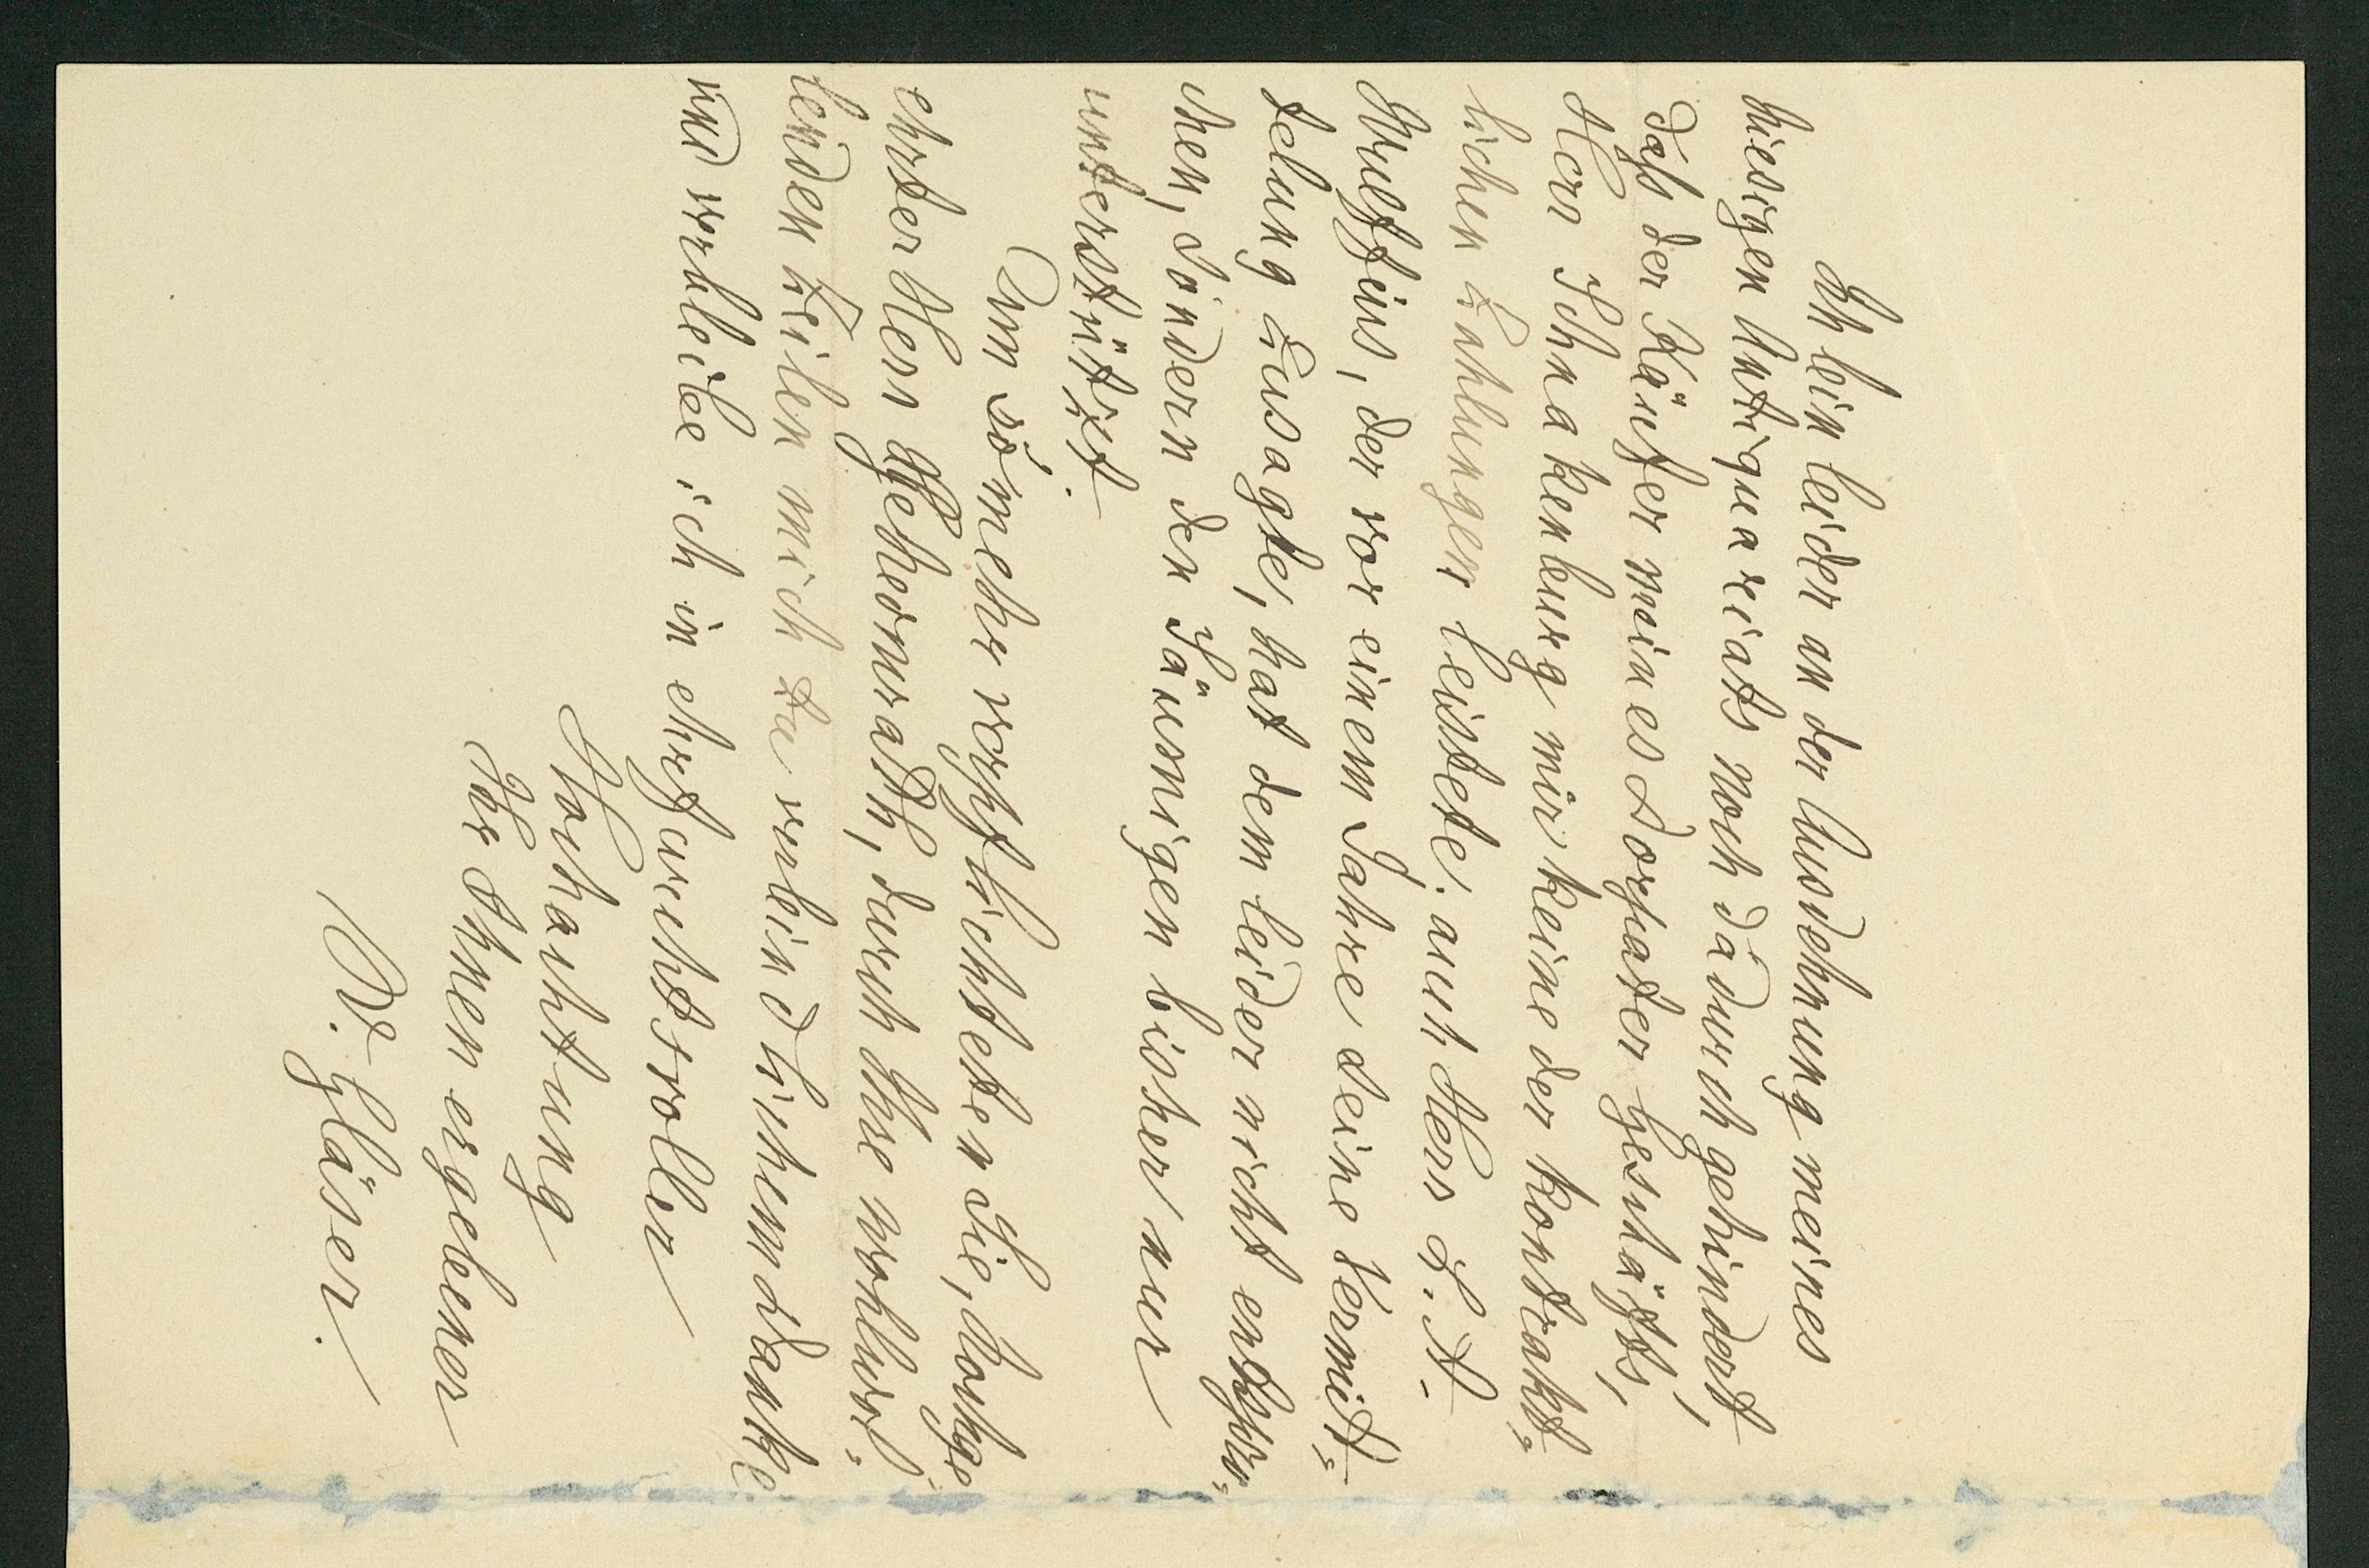 Ich bin leider an der Ausdehnung meines
hiesigen Antiquariats noch dadurch gehindert,
daß der Käufer meines Dorpater Geschäfts,
Herr Schnakenburg mir keine der kontrakt-
lichen Zahlungen leistete; auch Herr
Wulffius, der vor einem Jahre seine Vermitt-
telung zusagte, hat dem leider nicht entspro-
chen, sondern den Säumigen bisher nur
unterstützt.
Um so mehr verpflichteten Sie, hochge-
ehrter Herr Geheomrath, durch Ihre wohlwol-
lenden Zeilen mich zu verbindlichem Danke
und verbleibe ich in ehrfurchtsvoller
Hochachtung
Ihr Ihnen ergebener
Dr. Gläser.